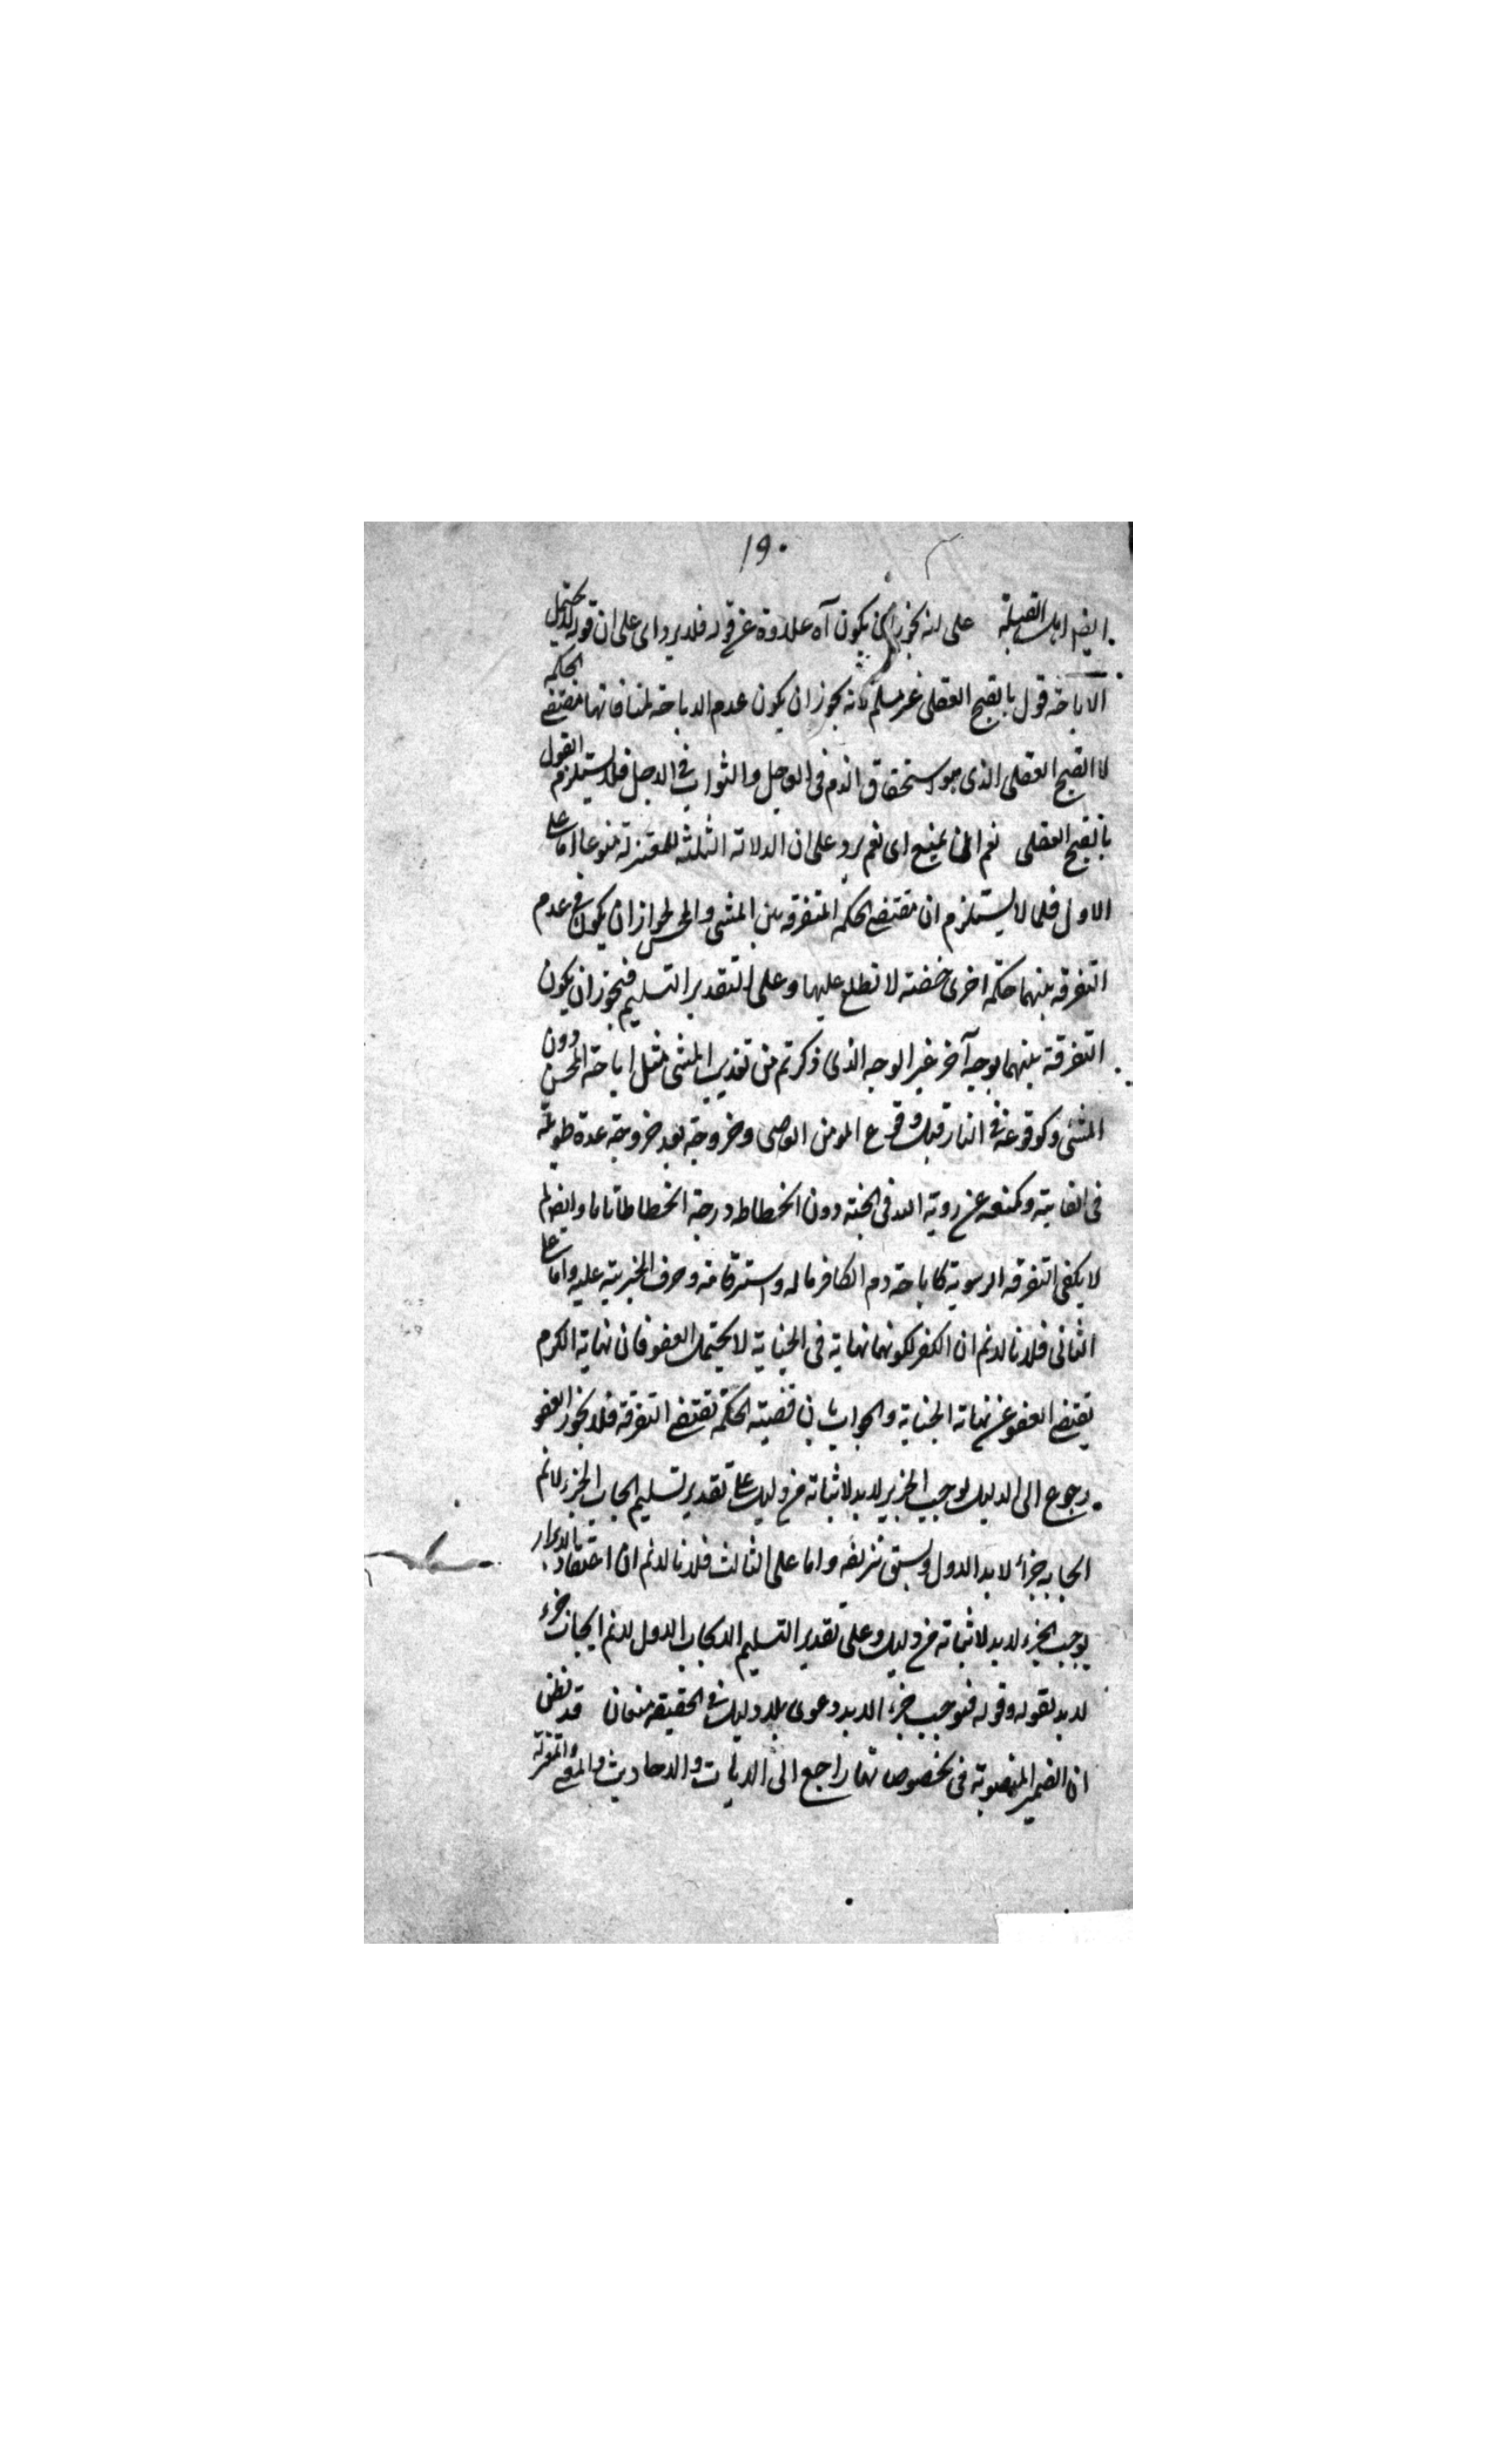 ١٩٠
ايضا اهل القبلة على انه يجوز ان يكون آه علاوة عن قوله فلا يرد اى على ان قوله لا يحتمل
الاباحة قول بالقبح العقلى غير مسلم لانه يجوز ان يكون عدم الاباحة لمنافاتها مقتضى الحكمة
لا القبح العقلى الذى هو استحقاق الذم فى العاجل والثواب فى الاجل فلا يستلزم القول
بالقبح العقلى نعم المنع اى نعم يرد على ان الدلائة الثلثة للمعتزلة منوعا اما على
الاول فلما لا يستلزم ان مقتضى الحكمة التفرقة بين المسئ والمحسن لجواز ان يكون فى عدم
التفرقة بينهما حكمة اخرى خفية لا نطلع عليها وعلى التقدير التسليم فيجوز ان يكون
التفرقة بينهما بوجه آخر غير الوجه الذى ذكرتم من تعذيب المسئ مثل اباحة المحسن دون
المسئ وكوقوعه فى النار قبل وقوع المومن العاصى وخروجه بعد خروجه عدة طويلة
فى الغاية وكمنعه عن روية الله فى الجنة دون انحطاطه درجة انحطاطا تاما وايضا لم
لا يكفى التفرقة الدنيوية كاباحة دم الكافر ماله واسترقاقه وصرف الجزية عليه واما على
الثانى فلانا لانم ان الكفر لكونها نهاية فى الجناية لا يحتمل العفو فان نهاية الكرم
يقتضى العفو عن نهاية الجناية والجواب بان قضية الحكمة تقتضى التفرقة فلا يجوز العفو
رجوع الى الدليل لوجب الجزء لابد لاثباته من دليل على تقدير تسليم ايجاب الجزء لانم
ايجابه جزاء لابد الاول وسبق تزيفه واما على الثالث فلانا لانم ان اعتقاد
يوجب الجزء لابد لاثباته من دليل وعلى تقدير التسليم الايجاب الاول لانم ايجاب جزء
لابد لقوله وقوله فيوجب جزاء الابد دعوى بلا دليل فى الحقيقة منعان قد نظن
ان الضمير المنصوبة فى يخصوصنها راجع الى الايات والاحاديث والمعتزلة